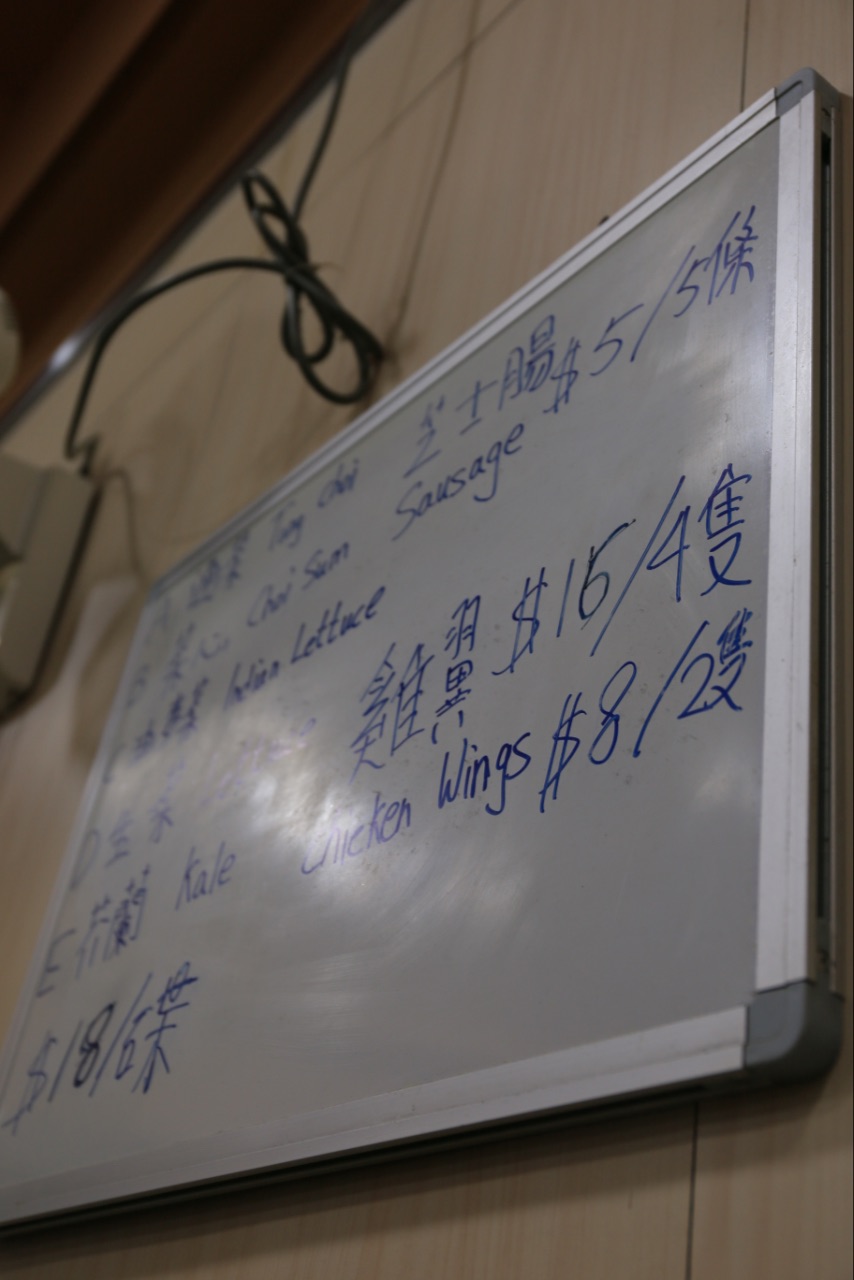 芝士腸 $5/5條
Sausage
A 通菜 Tung Choi
B 菜心 Choi Sum
C 油麥菜 Indian Lettuce
D 生菜 Lettuce
E 芥蘭 Kale
$18/碟
雞翼 $15/4隻
Chicken Wings $8/2隻